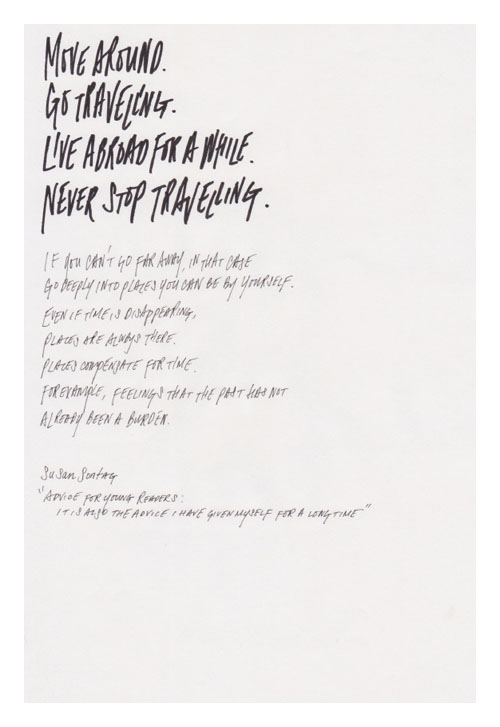 MOVE AROUND.
GO TRAVELING.
LIVE ABROAD FOR A WHILE.
NEVER STOP TRAVELLING.
IF YOU CAN'T GO FAR AWAY, IN THAT CASE
GO DEEPLY INTO PLACES YOU CAN BE BY YOURSELF.
EVEN IF TIME IS DISAPPEARING,
PLACES ARE ALWAYS THERE.
PLACES COMPENSATE FOR TIME.
FOR EXAMPLE, FEELINGS THAT THE PAST HAS NOT
ALREADY BEEN A BURDEN.
SUSAN SONTAG
"ADVICE FOR YOUNG READERS:
IT IS ALSO THE ADVICE I HAVE GIVEN MYSELF FOR A LONG TIME"